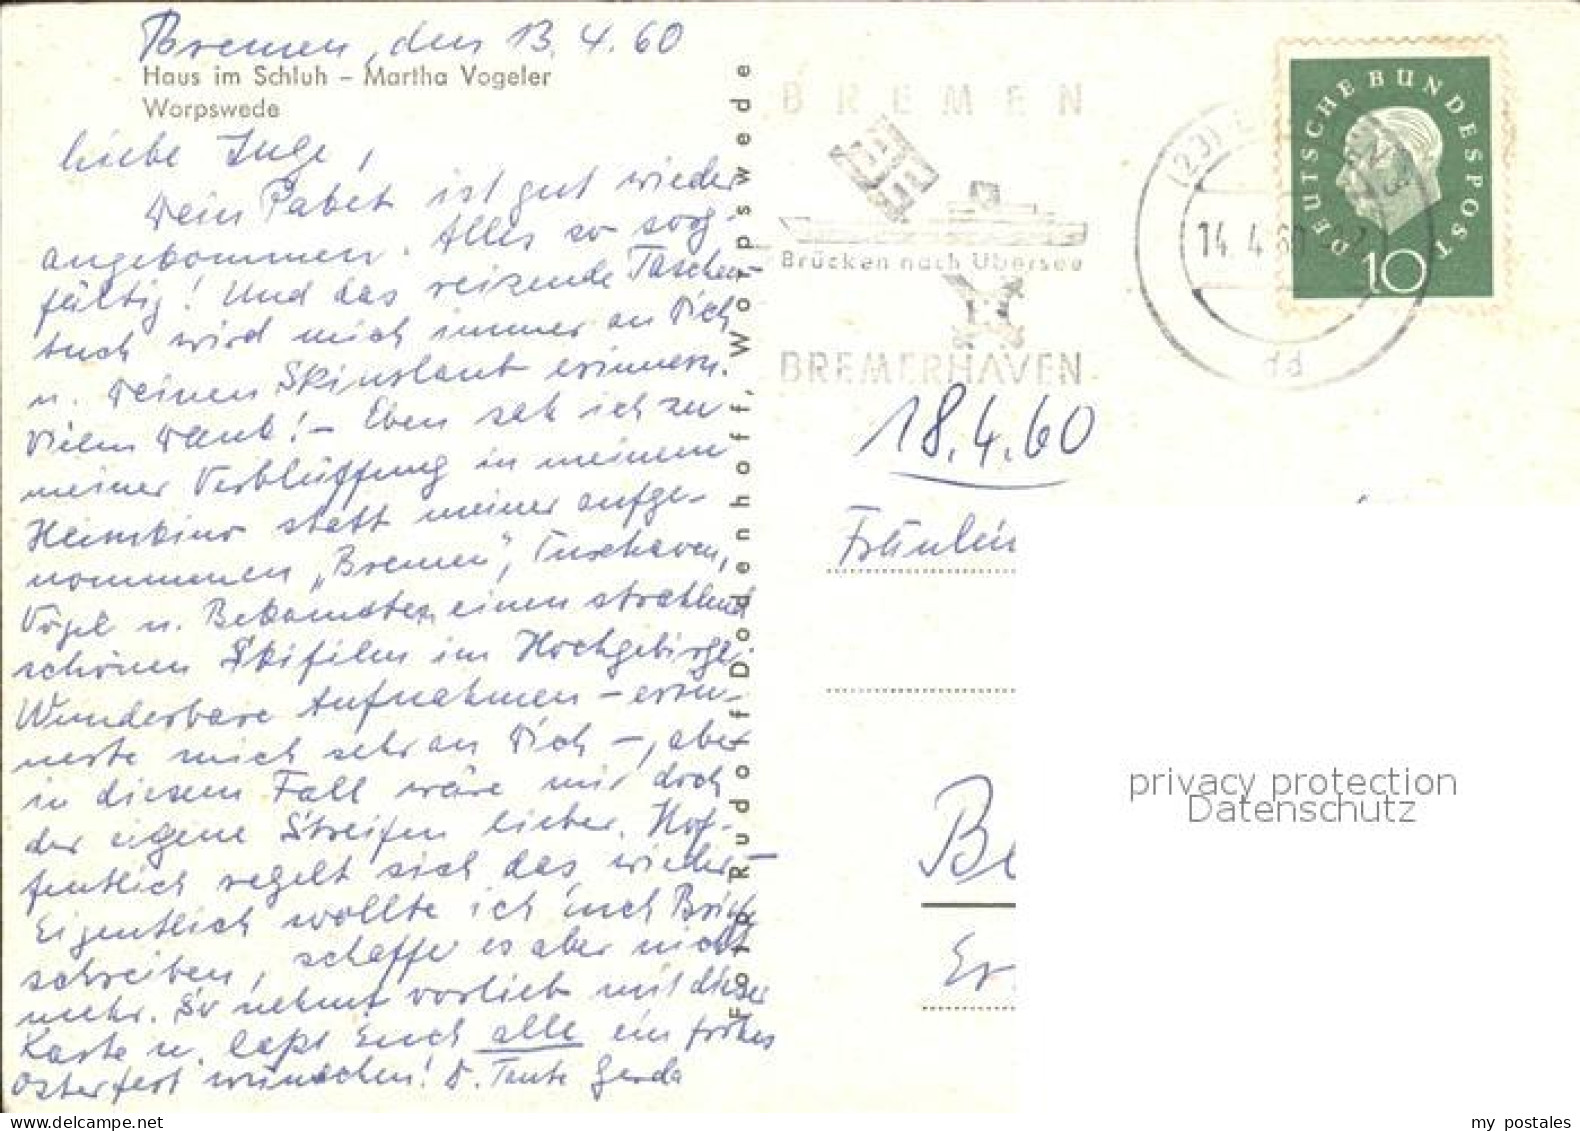 Bremen, den 13.4.60
Haus im Schluh – Martha Vogeler
Worpswede
liebe Inge,
Dein Paket ist gut wieder
angekommen. Alles so sorg-
fältig! Und das reizende Taschen-
tuch wird mich immer an Dich
u. Deinen Skiurlaub erinnern.
Vielen Dank! – Eben sah ich zu
meiner Verblüffung in meinem
Heimkino statt meiner aufge-
nommenen „Bremen“, Cuxhaven,
Vögel u. Bekannten, einen strahlend
schönen Skifilm im Hochgebirge.
Wunderbare Aufnahmen – erin-
nerte mich sehr an Dich –, aber
in diesem Fall wäre mir doch
der eigene Streifen lieber. Hof-
fentlich regelt sich das wieder –
Eigentlich wollte ich auch Briefe
schreiben, schaffe es aber nicht
mehr. So nehmt vorlieb mit dieser
Karte u. laßt Euch alle ein frohes
Osterfest wünschen! D. Tante Gerda
Foto Rudolf Dodenhoff, Worpswede
BREMEN
Brücken nach Übersee
BREMERHAVEN
(23)
14.4.60
dd
DEUTSCHE BUNDESPOST
10
18.4.60
Fräulein
Be
Er
privacy protection
Datenschutz
my postales